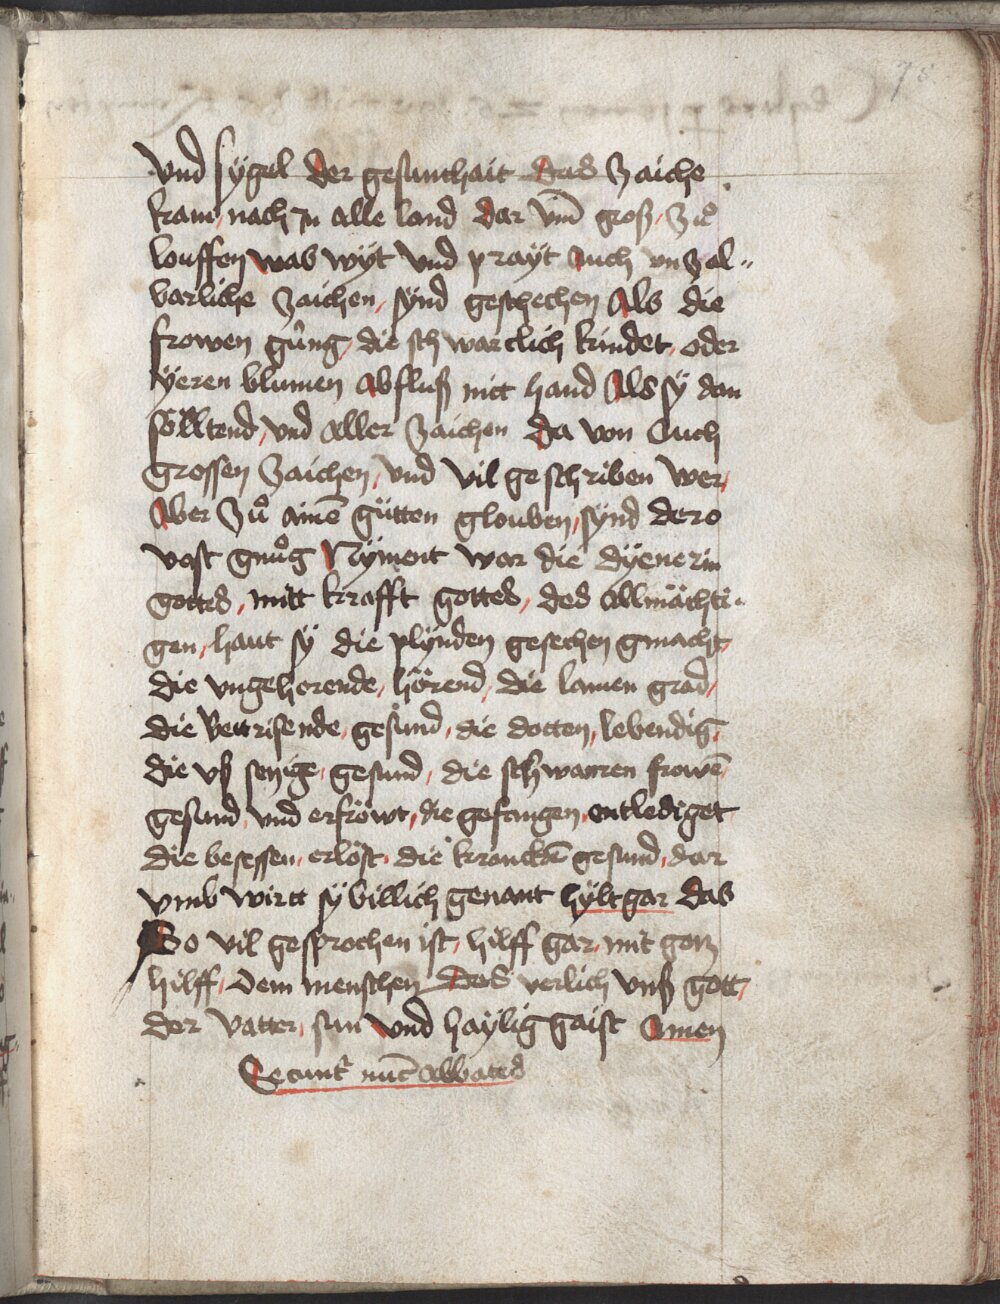 75
Vnd sygel der gesunthait das zaiche
kam nach in alle land dar vm̄ groß zů
louffen was wÿt Vnd prayt Auch vnzal„
barliche zaichen sÿnd geschechen Als die
frowen gûng die schwarclich kindet oder
yeren blumen Abfluß nitt hand Als sÿ dan
sölltend Vnd aller zaichen da von Auch
grossen zaichen Vnd vil geschriben wer
Aber zů aīnē gütten glouben sÿnd dero
vast gnůg Nÿment war die dÿenerin
gottes mitt krafft gottes des Allmächti„
gen haut sÿ die plÿnden gesechen gmacht
die vngehorende hörend die lamen grad
die Bettrisende gesund die dotten lebendig
die vß seczige gesund die schwarren frowē
gesund vnd erfröwt die gefangen entlediget
die besessen erlöst die kranckē gesund dar
vmb wirtt sÿ billich genant hyltgar das
So vil gesprochen ist hilff gar mit gotz
hilff dem menschen Das verlich vnß gott
der Vatter sun Vnd haÿlig gaist Amen
abbates